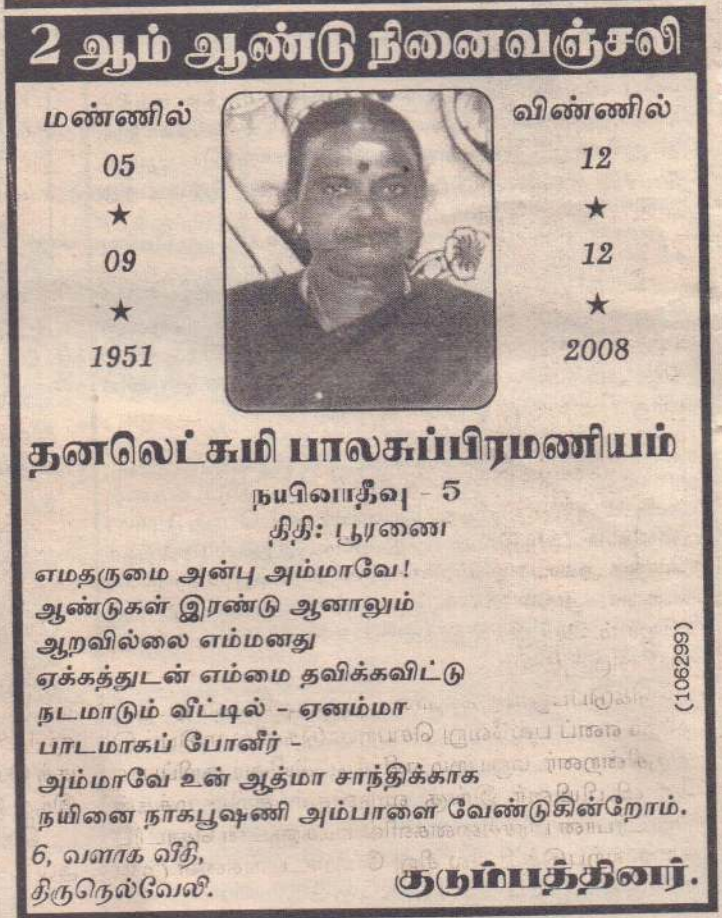 2 ஆம் ஆண்டு நினைவஞ்சலி
மண்ணில்
05
★
09
★
1951
விண்ணில்
12
★
12
★
2008
தனலெட்சுமி பாலசுப்பிரமணியம்
நயினாதீவு - 5
திதி: பூரணை
எமதருமை அன்பு அம்மாவே!
ஆண்டுகள் இரண்டு ஆனாலும்
ஆறவில்லை எம்மனது
ஏக்கத்துடன் எம்மை தவிக்கவிட்டு
நடமாடும் வீட்டில் - ஏனம்மா
பாடமாகப் போனீர் -
அம்மாவே உன் ஆத்மா சாந்திக்காக
நயினை நாகபூஷணி அம்பாளை வேண்டுகின்றோம்.
6, வளாக வீதி,
திருநெல்வேலி.
குடும்பத்தினர்.
(106299)